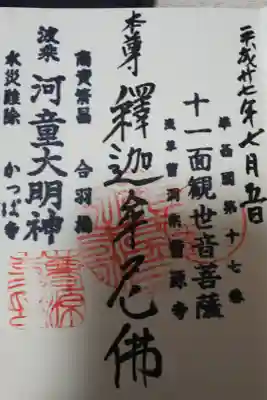 平成廿七年七月五日
十一面観世音菩薩
浅草 曹洞宗 曹源寺
本尊 釋迦牟尼佛
商売繁昌 合羽橋
波乗 河童大明神
水災難除 かっぱ寺